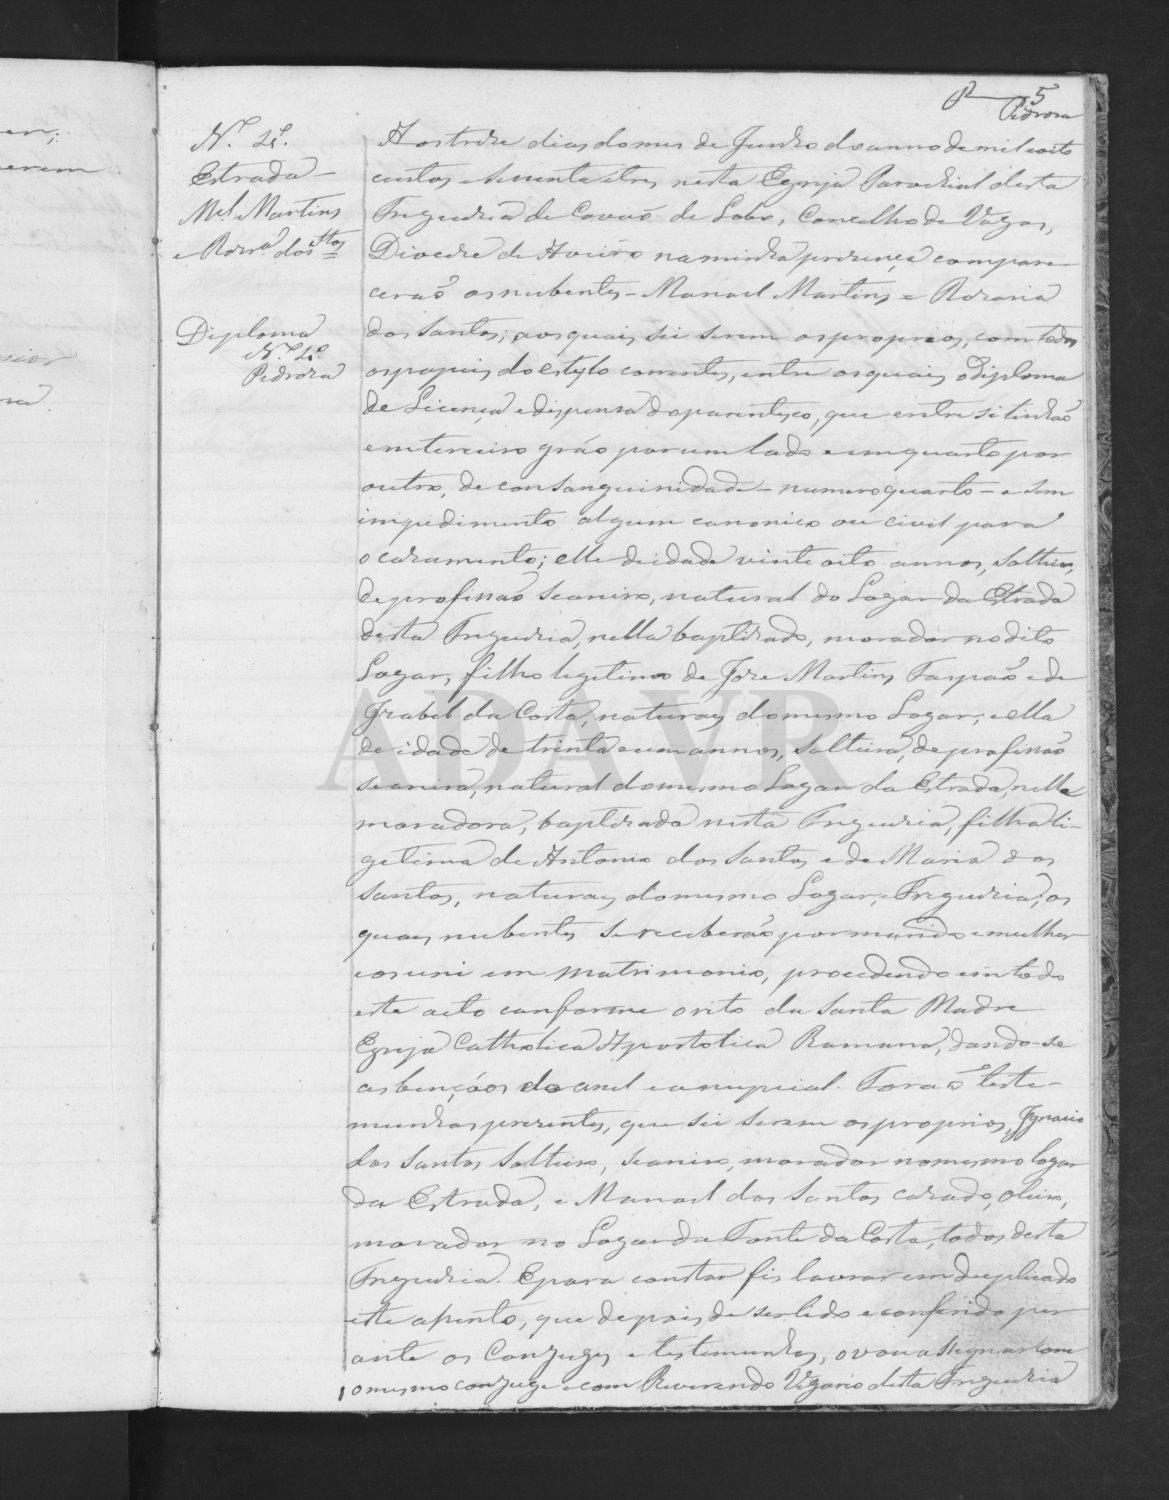 5
Pedroza
N.º 4º.
Estrada -
Mel. Martins
e Roza dos Stos
Diploma
N.º 4º
Pedroza
Aos treze dias do mes de Junho do anno de mil oito
centos e secenta e tres nesta Egreja Parochial desta
Freguezia de Covão de Lobo, Concelho de Vagos,
Diocese de Aveiro na minha prezença compare-
cerão os nubentes - Manoel Martins e Rozaria
dos Santos; aos quais sei serem os proprios, com todos
os papeis do estylo correntes, entre os quais o diploma
de Licença e dispensa do parentesco, que entre si tinhão
em terceiro gráo por um lado e em quarto por
outro, de consanguinidade - numero quarto - e sem
impedimento algum canonico ou civil para
o cazamento; elle de idade vinte oito annos, solteiro,
de profissão seareiro, natural do Lugar da Estrada
desta Freguezia, nella baptizado, morador no dito
Lugar, filho legitimo de Joze Martins Faspão e de
Izabel da Costa, naturaes do mesmo Lugar; e ella
de idade de trinta e um annos, solteira, de profissão
seareira, natural do mesmo Lugar da Estrada, nelle
moradora, baptizada nesta Freguezia, filha li-
getima de Antonio dos Santos e de Maria dos
Santos, naturaes do mesmo Lugar, e Freguezia; os
quaes nubentes se receberão por marido e mulher
e os uni em matrimonio, procedendo em todo
este acto conforme o rito da Santa Madre
Egreja Catholica Apostolica Romana, dando-se
as bençãos do anel e a nupcial. Forão teste-
munhas prezentes, que sei serem os proprios, Ignacio
dos Santos solteiro, seareiro, morador no mesmo logar
da Estrada, e Manoel dos Santos cazado, oleiro,
morador no Lugar da Fonte da Costa, todos desta
Freguezia. E para constar fis lavrar em duplicado
este assento, que depois de ser lido e conferido per
ante os Conjuges e testemunhas, o vou assignar com
o mesmo conjuge e com Reverendo Vigario desta Freguezia
ADAVR